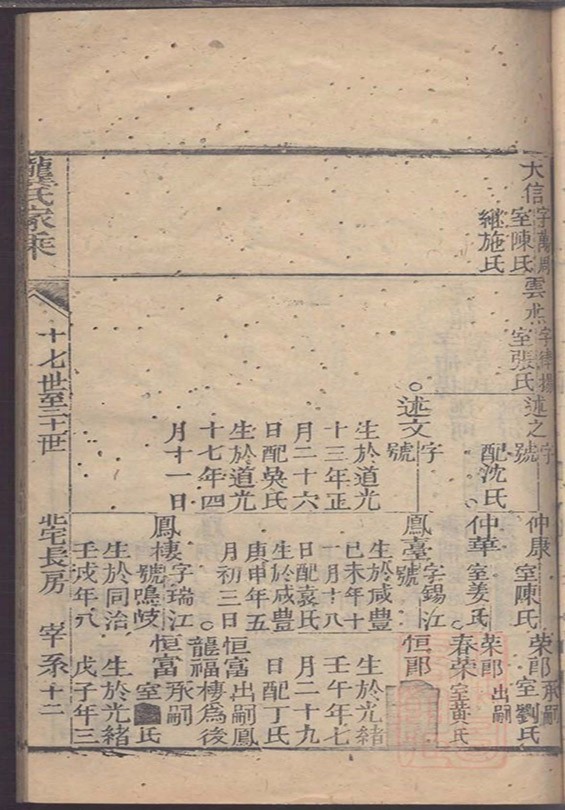 大信
字萬周
室陳氏
繼施氏
雲
室張氏
述之
字
號
配沈氏
述文
字
號
生於道光
十三年正
月二十六
日配吳氏
生於道光
十七年四
月十一日
仲康
室陳氏
仲華
室姜氏
鳳臺
字錫江
號
生於咸豐
己未年十
一月十八
日配袁氏
生於咸豐
庚申年五
月初三日
鳳棲
字瑞江
號鳴岐
生於同治
壬戌年八
榮郎
承嗣
室劉氏
榮郎
出嗣
春榮
室黃氏
恒郎
生於光緒
壬午年七
月二十九
日配丁氏
恒富出嗣鳳
棲為後
龍福
恒富
承嗣
室
氏
生於光緒
戊子年三
龔氏家乘
十七世至二十世
北宅長房
宰系
十二